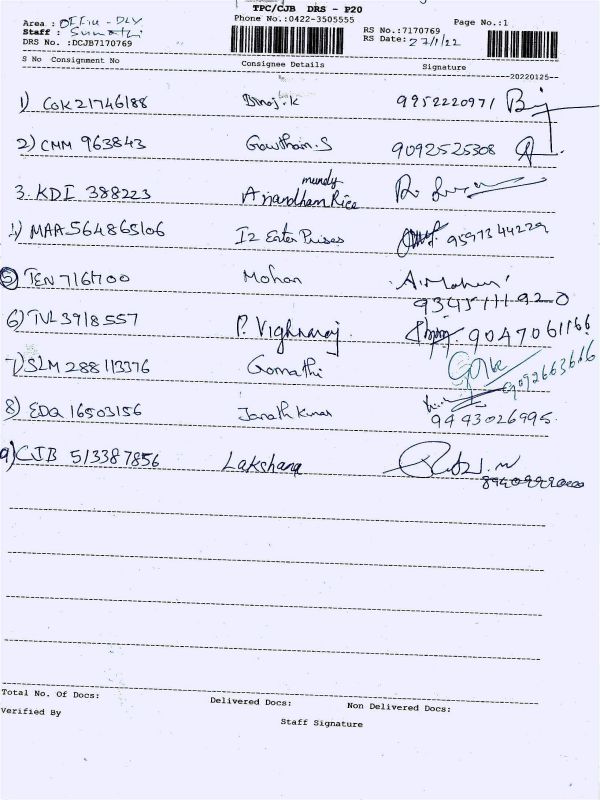 TPC/CJB DRS - P20
Area : Office - DLY
Phone No.:0422-3505555
Page No.:1
Staff : Sumathi
RS No.:7170769
DRS No. :DCJB7170769
RS Date: 27/1/22
S No Consignment No Consignee Details Signature
20220125
1) COK 21746188 Binoj.K 9952220971
2) CMM 963843 Gowtham.S 9092525308
3. KDI 388223 Anandham Rice mundy
4) MAA 564865106 I2 Enter Prises 9597344229
5) TEN 7167700 Mohan A.Mohan
9345111920
6) TVL 3918557 P. Vighnaraj 9047061166
7) SLM 288113376 Gomathi 9092663616
8) EDQ 16503156 Janath Kumar
9443026995
9) CJB 513387856 Lakshana
Total No. Of Docs: Delivered Docs: Non Delivered Docs:
Verified By Staff Signature